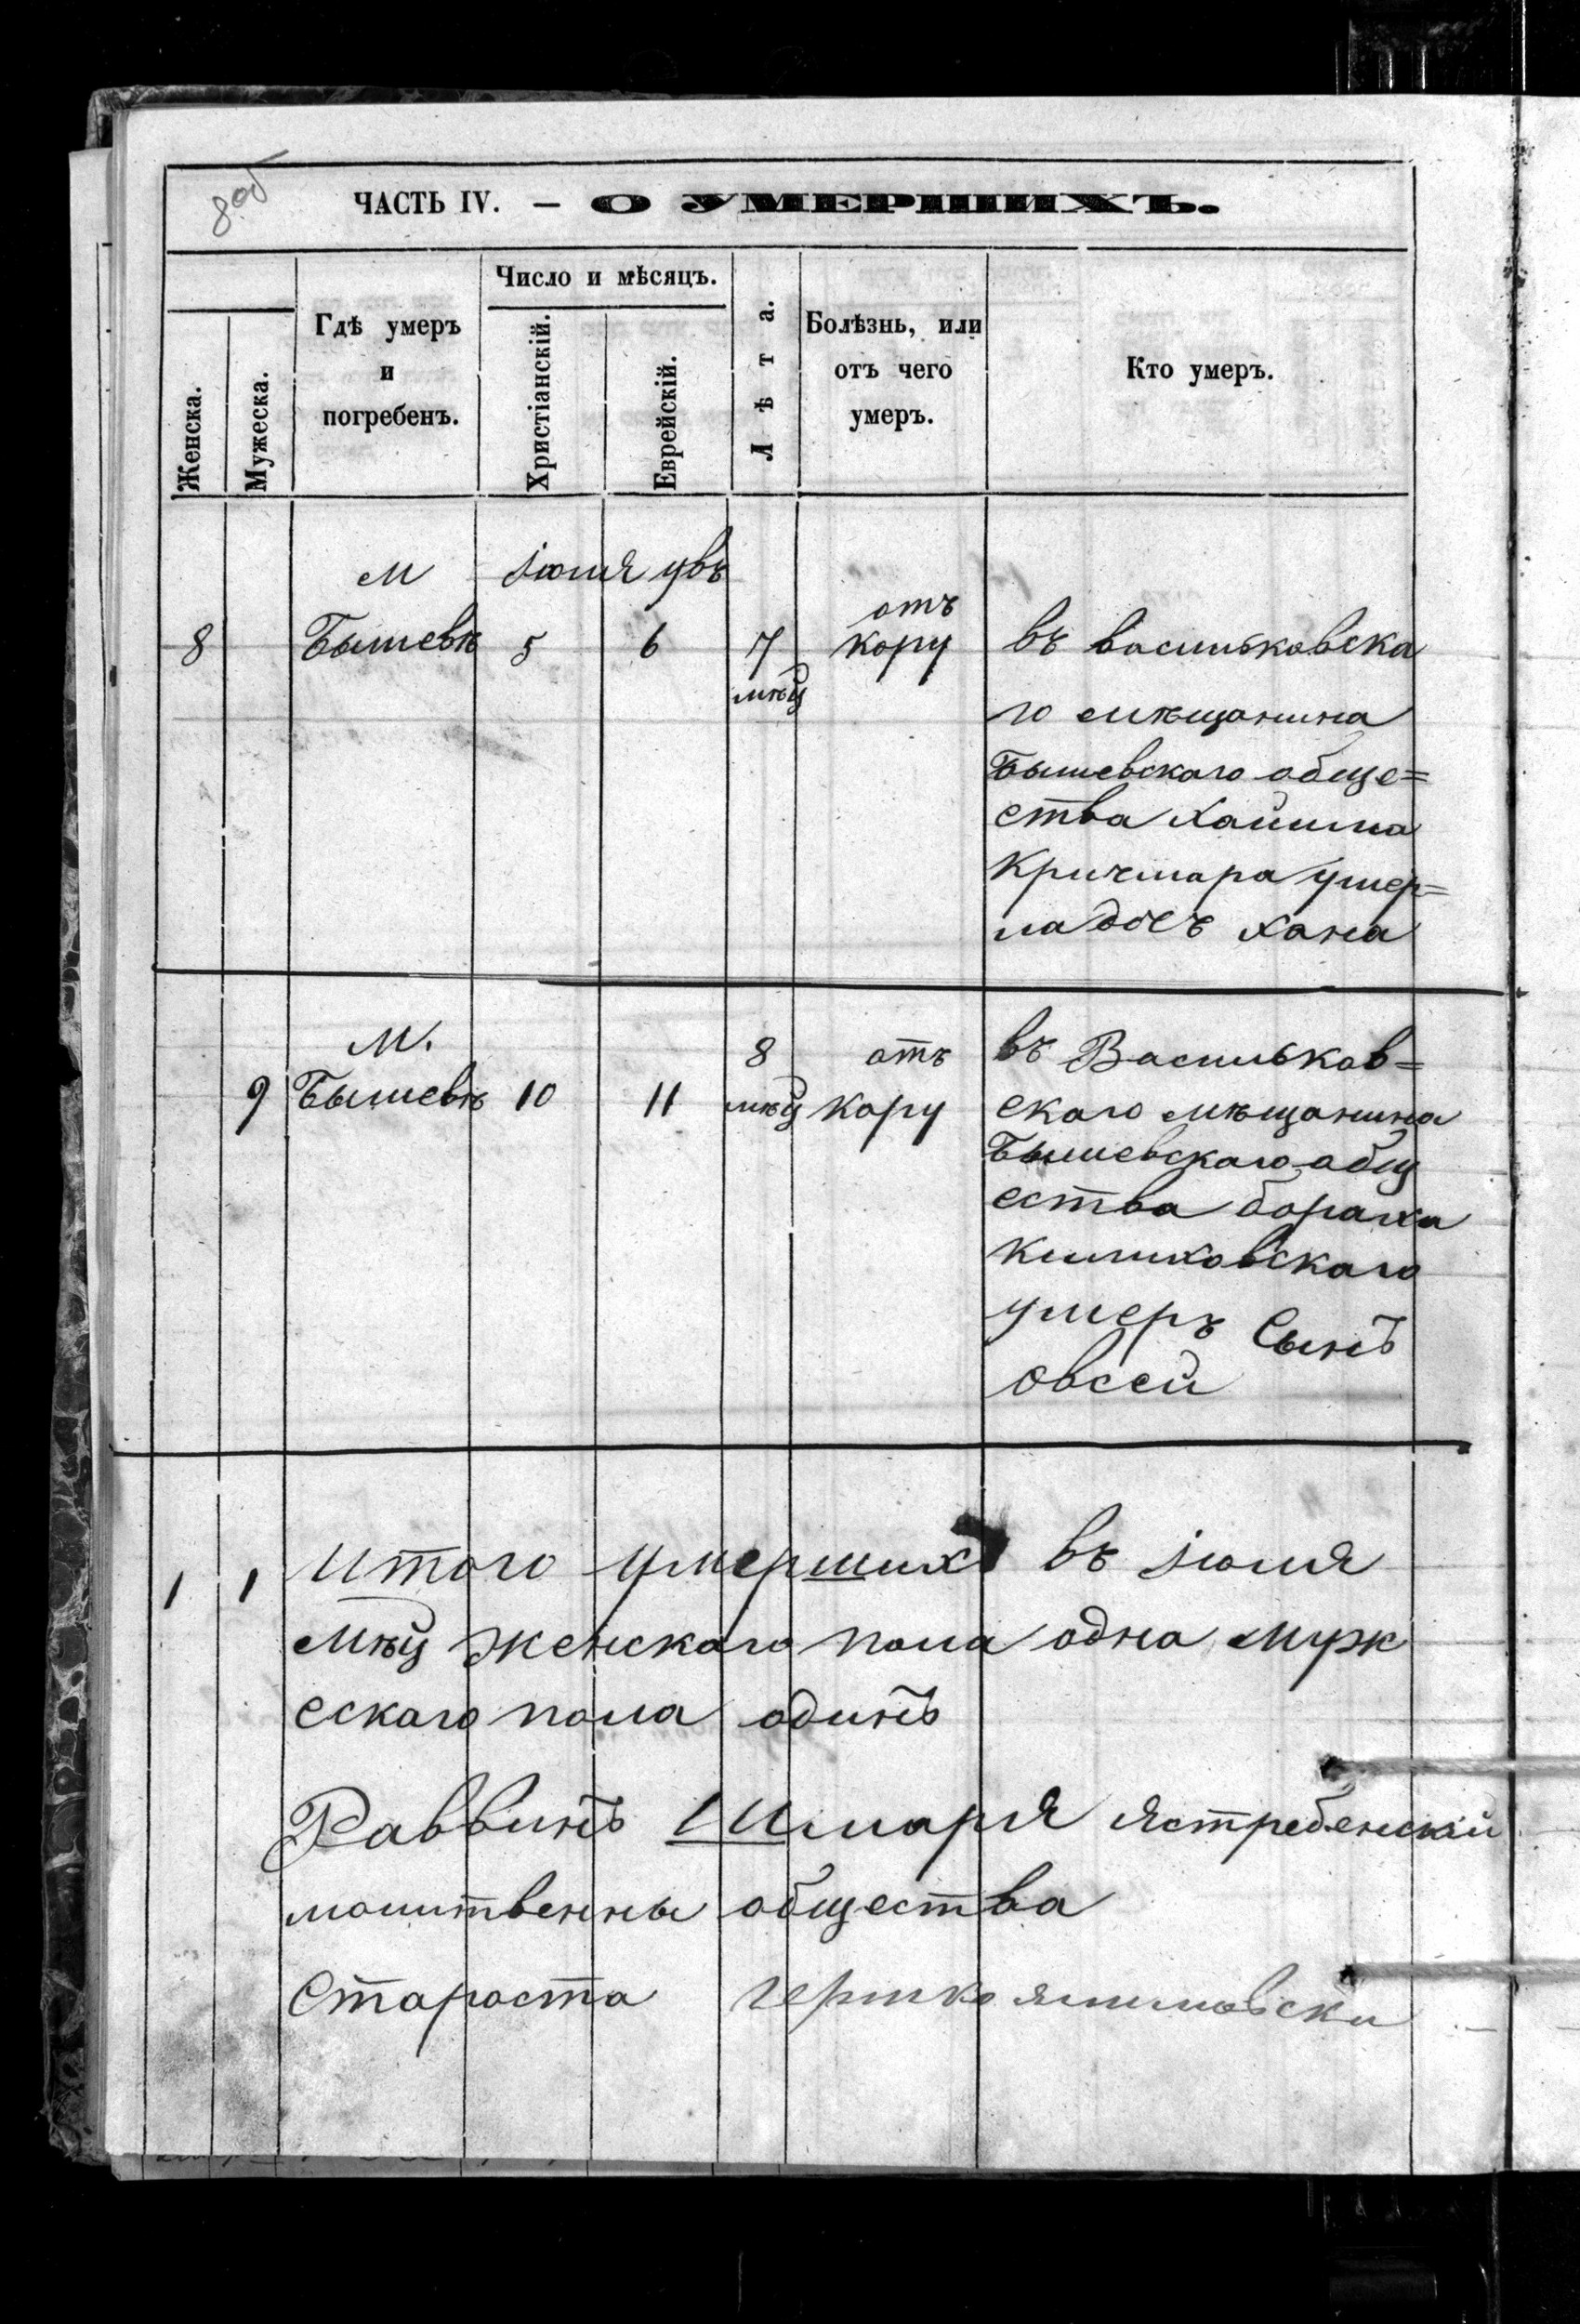 8об
ЧАСТЬ IV. — О УМЕРШИХЪ.
Женска.
Мужеска.
Гдѣ умеръ
и
погребенъ.
Число и мѣсяцъ.
Христіанскій.
Еврейскій.
Лѣта.
Болѣзнь, или
отъ чего
умеръ.
Кто умеръ.
м іюля
отъ
8 Бышевѣ 5 6 7 кору въ васильковска
мѣц го мѣщанина
Бышевскаго обще=
ства Хаима
Кричмара умер=
ла дочъ Хана
м. 8 отъ въ Васильков=
9 Бышевѣ 10 11 мѣц кору скаго мѣщанина
Бышевскаго общ
ества бораха
умеръ Сынъ
овсей
1 1 итого умершихъ въ іюля
мѣц женскаго пола одна муж
ескаго пола одинъ
Раввинъ Шмаря Ястребенскій
молитвенны общества
Староста гершко